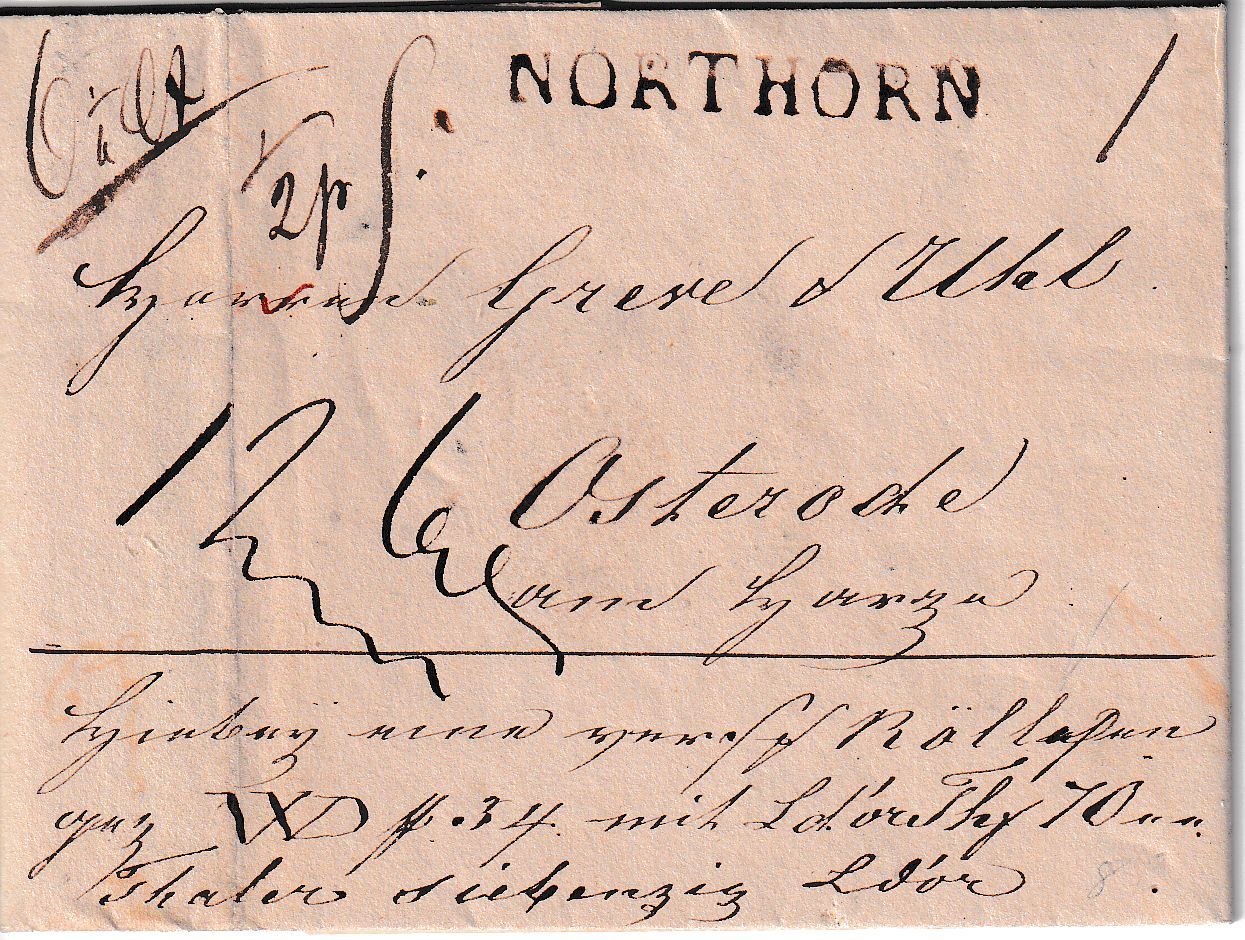 NORTHORN
1/2 p
Herren Greve & Uhl
12 6
Osterode
am Harze
Hiebey eine vers. Röllchen
gez W D # 34. mit Ldór Thlr 70
Thaler siebenzig Ldór
8